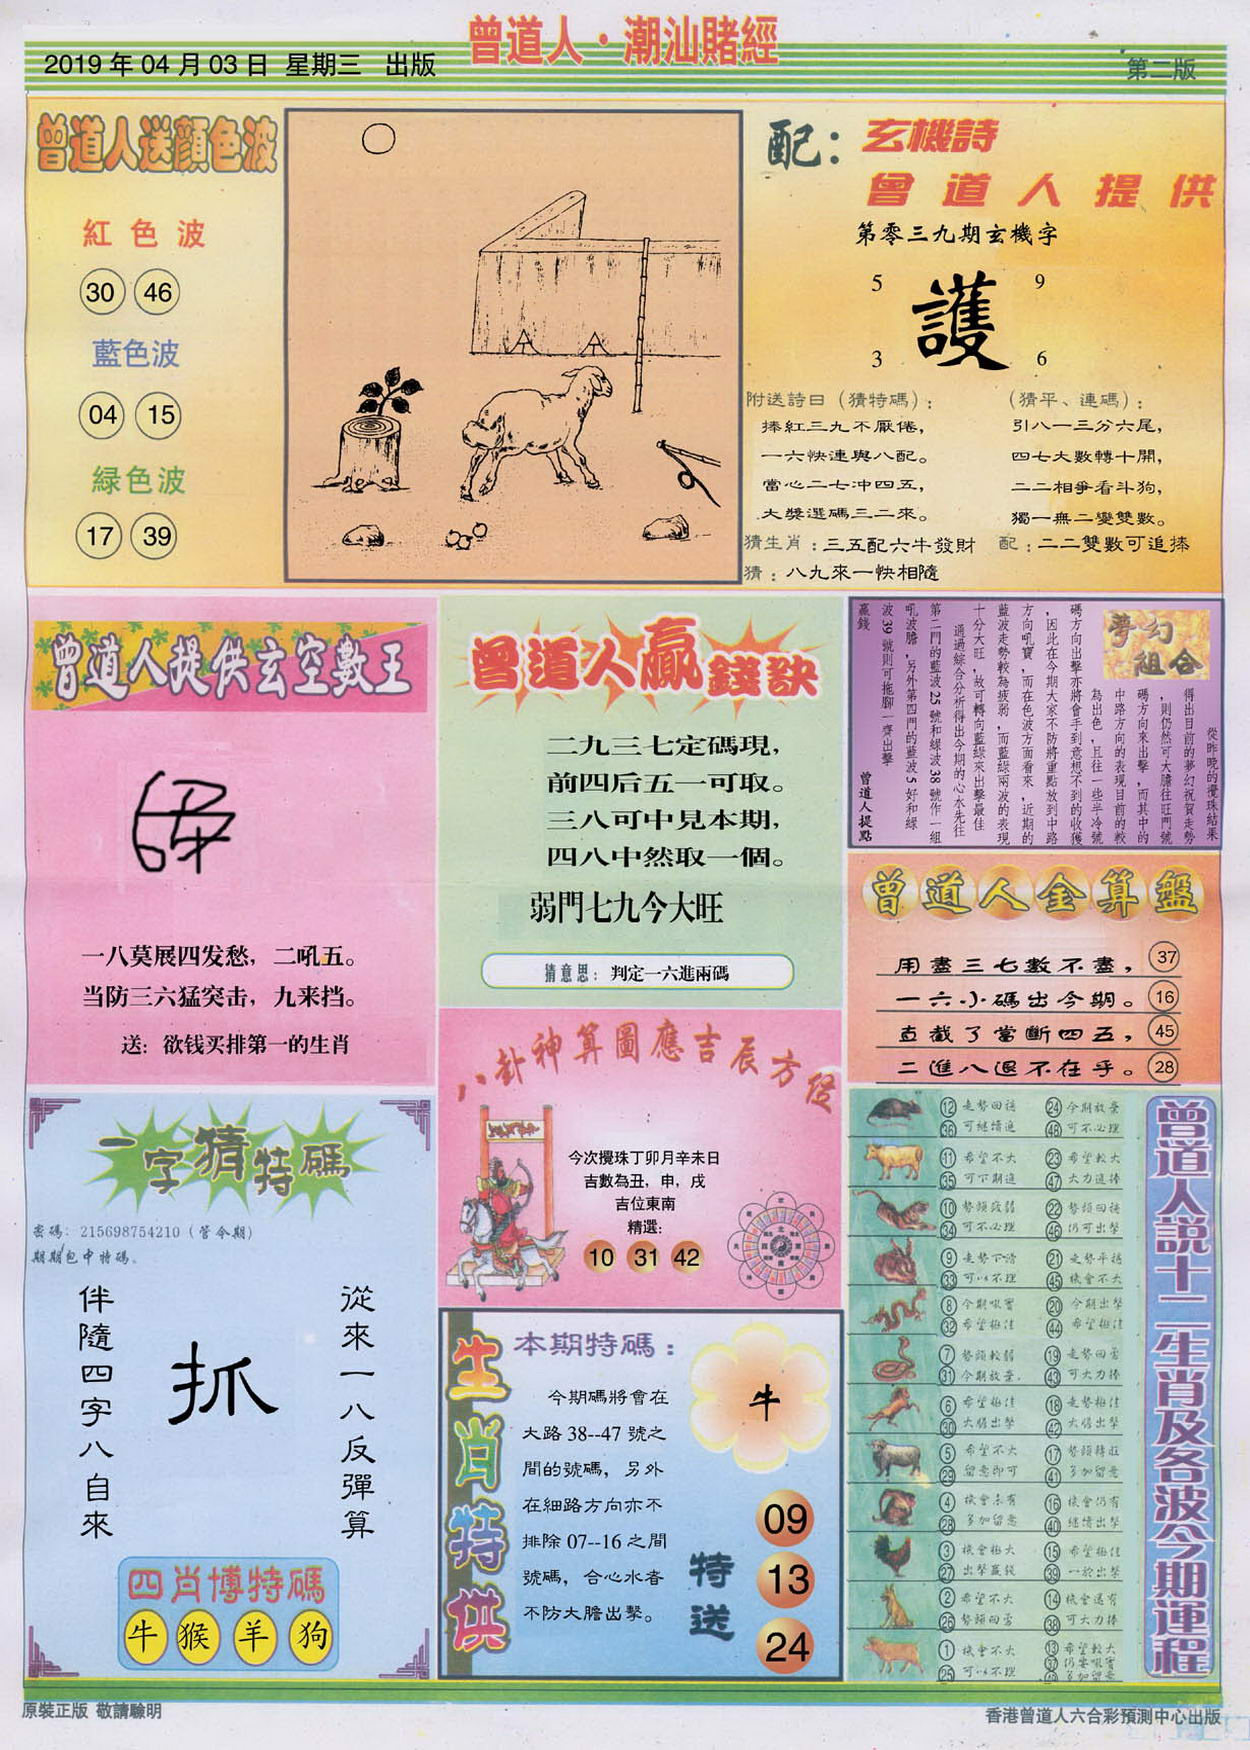 曾道人·潮汕賭經
2019年04月03日 星期三 出版
第二版
曾道人送顔色波
紅色波
30 46
藍色波
04 15
緑色波
17 39
配：玄機詩
曾道人提供
第零三九期玄機字
5 9
護
3 6
附送詩曰（猜特碼）：
捧紅三九不厭倦，
一六快連與八配。
當心二七冲四五，
大獎選碼三二來。
（猜平、連碼）：
引八一三分六尾，
四七大數轉十開，
二二相爭看斗狗，
獨一無二變雙數。
猜生肖：三五配六牛發財
配：二二雙數可追捧
猜：八九來一快相隨
曾道人提供玄空數王
一八莫展四发愁，二吼五。
当防三六猛突击，九来挡。
送：欲钱买排第一的生肖
曾道人贏錢訣
二九三七定碼現，
前四后五一可取。
三八可中見本期，
四八中然取一個。
弱門七九今大旺
猜意思：判定一六進兩碼
夢幻
組合
從昨晚的攪珠結果
得出目前的夢幻祝賀走勢
，則仍然可大膽往旺門號
碼方向來出擊，而其中的
中路方向的表現目前的較
為出色，且往一些半冷號
碼方向出擊亦將會手到意想不到的收獲
，因此在今期大家不防將重點放到中路
方向吼寶，而在色波方面看來，近期的
藍波走勢較為疲弱，而藍綠兩波的表現
十分大旺，故可轉向藍綠來出擊最佳
通過綜合分析得出今期的心水先往
第二門的藍波25號和綠波38號作一組
吼波膽，另外第四門的藍波5好和綠
波39號則可拖腳一齊出擊
贏錢
曾道人提點
曾道人金算盤
用盡三七數不盡， 37
一六小碼出今期。 16
直截了當斷四五， 45
二進八退不在乎。 28
八卦神算圖應吉辰方位
今次攪珠丁卯月辛未日
吉數為丑，申，戌
吉位東南
精選：
10 31 42
一字猜特碼
密碼：215698754210（管令期）
期期包中特碼。
從來一八反彈算
抓
伴隨四字八自來
四肖博特碼
牛 猴 羊 狗
生肖特供
本期特碼：
今期碼將會在
大路38--47號之
間的號碼，另外
在細路方向亦不
排除07--16之間
號碼，合心水者
不防大膽出擊。
牛
特送
09
13
24
曾道人説十二生肖及各波今期運程
12 走勢回穩 24 今期放棄
36 可繼續追 48 可不必理
11 希望不大 23 希望較大
35 可下期追 47 大力追捧
10 勢頭疲弱 22 勢頭回穩
34 可不必理 46 仍可出擊
9 走勢下滑 21 走勢平穩
33 可以不理 45 機會不大
8 今期吼寶 20 今期出擊
32 希望極佳 44 希望極佳
7 勢頭較弱 19 走勢回勇
31 今期放棄. 43 可大力捧
6 希望極佳 18 走勢極佳
30 大膽出擊 42 大膽出擊
5 希望不大 17 勢頭轉旺
29 留意即可 41 多加留意
4 機會未有 16 機會仍有
28 多加留意 40 繼續出擊
3 機會極大 15 希望極佳
27 出擊贏錢 39 一於出擊
2 希望不大 14 機會還有
26 勢頭回勇 38 可大力捧
1 機會不大 13 希望較大
25 可以不理 37 仍要吼實
49 多加留意
原裝正版 敬請驗明
香港曾道人六合彩預測中心出版